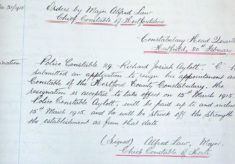 Orders by Major Alfred Law
Chief Constable of Hertfordshire
Constabulary Head Quarters
Hertford, 20th February
Police Constable 29 Richard Josiah Aylott, "C"
submitted an application to resign his appointment as
Constable of the Hertford County Constabulary. The
resignation is accepted to take effect on 15th March 1915.
Police Constable Aylott, will be paid up to and inclu
15th March 1915 and he will be struck off the strength
the establishment as from that date
(Signed) Alfred Law, Major,
Chief Constable of Herts